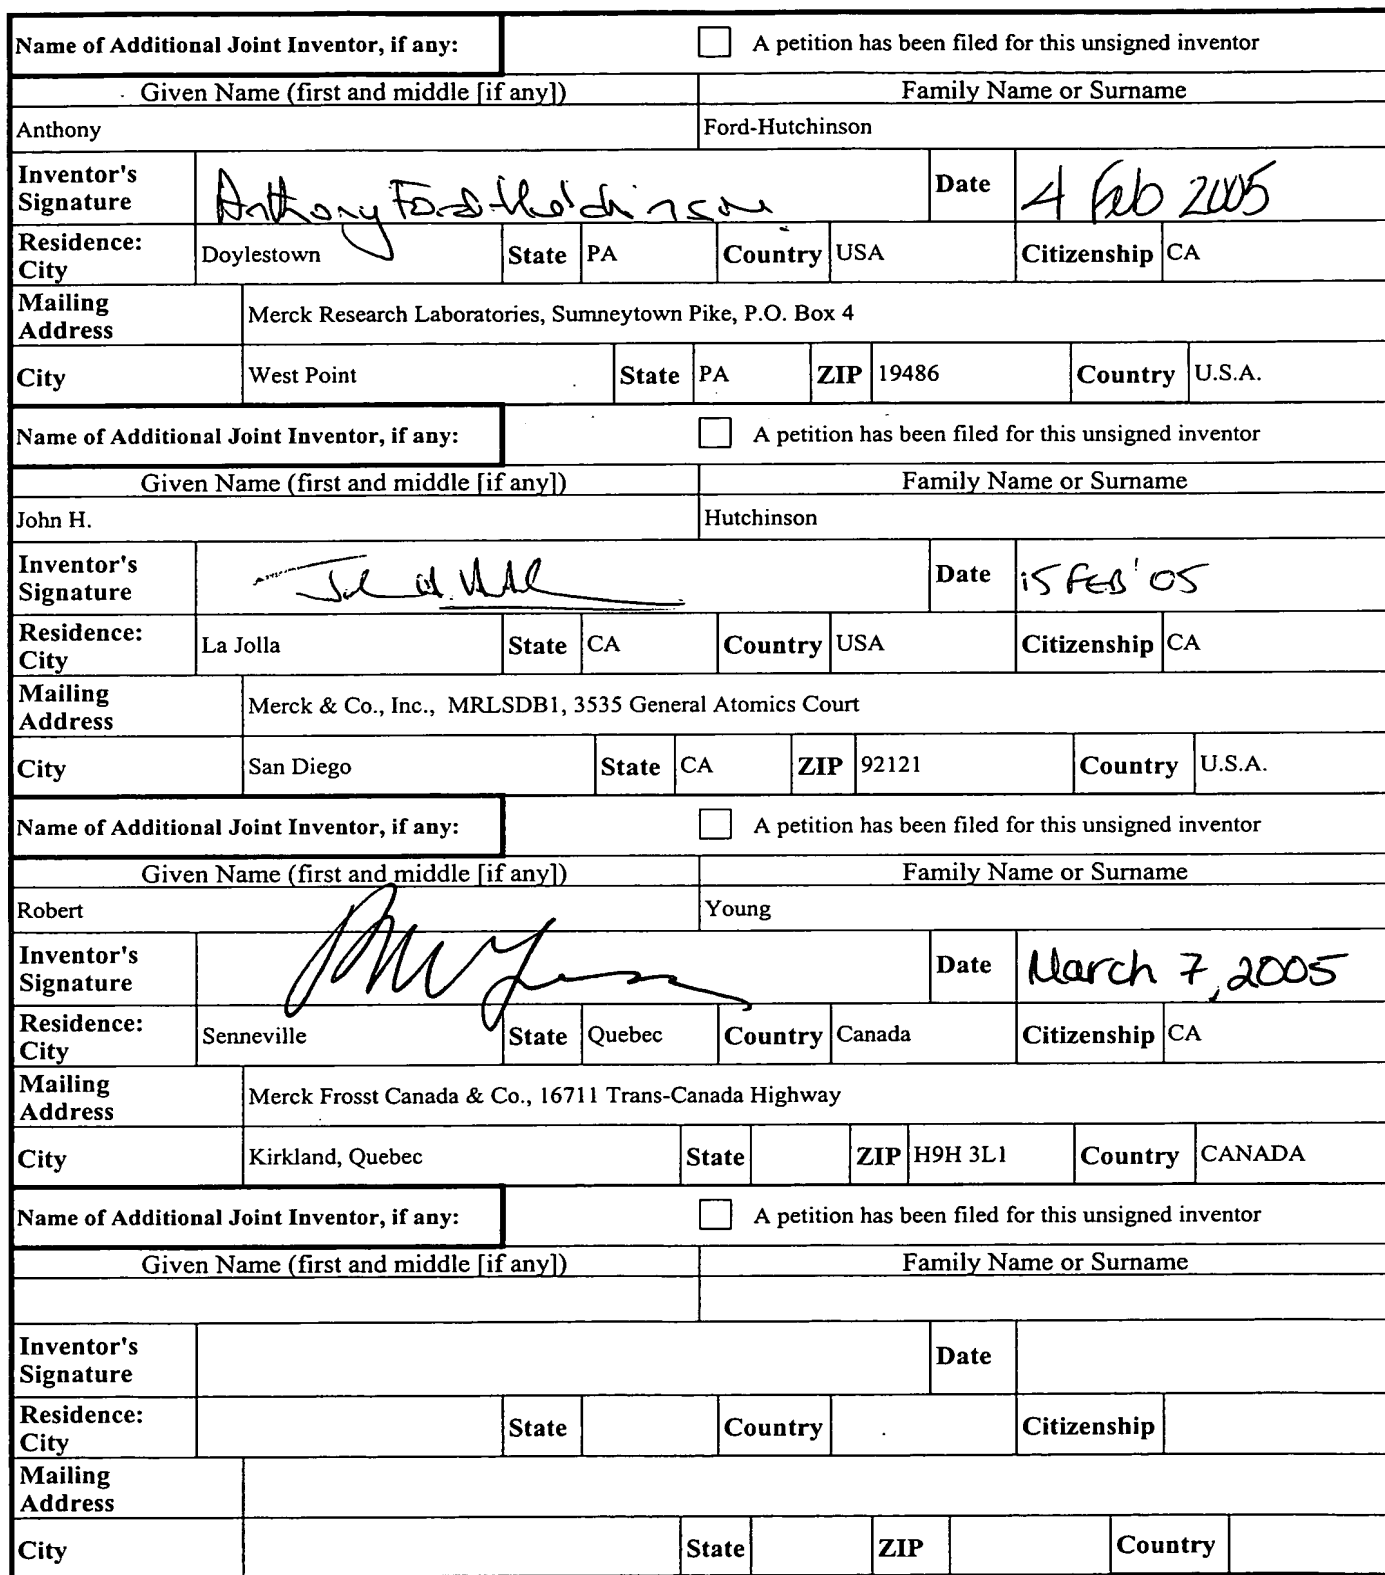 Name of Additional Joint Inventor, if any: A petition has been filed for this unsigned inventor
Given Name (first and middle [if any]) Family Name or Surname
Anthony Ford-Hutchinson
Inventor's Signature Anthony Ford-Hutchinson Date 4 Feb 2005
Residence: City Doylestown State PA Country USA Citizenship CA
Mailing Address Merck Research Laboratories, Sumneytown Pike, P.O. Box 4
City West Point State PA ZIP 19486 Country U.S.A.
Name of Additional Joint Inventor, if any: A petition has been filed for this unsigned inventor
Given Name (first and middle [if any]) Family Name or Surname
John H. Hutchinson
Inventor's Signature Date 15 FEB '05
Residence: City La Jolla State CA Country USA Citizenship CA
Mailing Address Merck & Co., Inc., MRLSDB1, 3535 General Atomics Court
City San Diego State CA ZIP 92121 Country U.S.A.
Name of Additional Joint Inventor, if any: A petition has been filed for this unsigned inventor
Given Name (first and middle [if any]) Family Name or Surname
Robert Young
Inventor's Signature Date March 7, 2005
Residence: City Senneville State Quebec Country Canada Citizenship CA
Mailing Address Merck Frosst Canada & Co., 16711 Trans-Canada Highway
City Kirkland, Quebec State ZIP H9H 3L1 Country CANADA
Name of Additional Joint Inventor, if any: A petition has been filed for this unsigned inventor
Given Name (first and middle [if any]) Family Name or Surname
Inventor's Signature Date
Residence: City State Country Citizenship
Mailing Address
City State ZIP Country